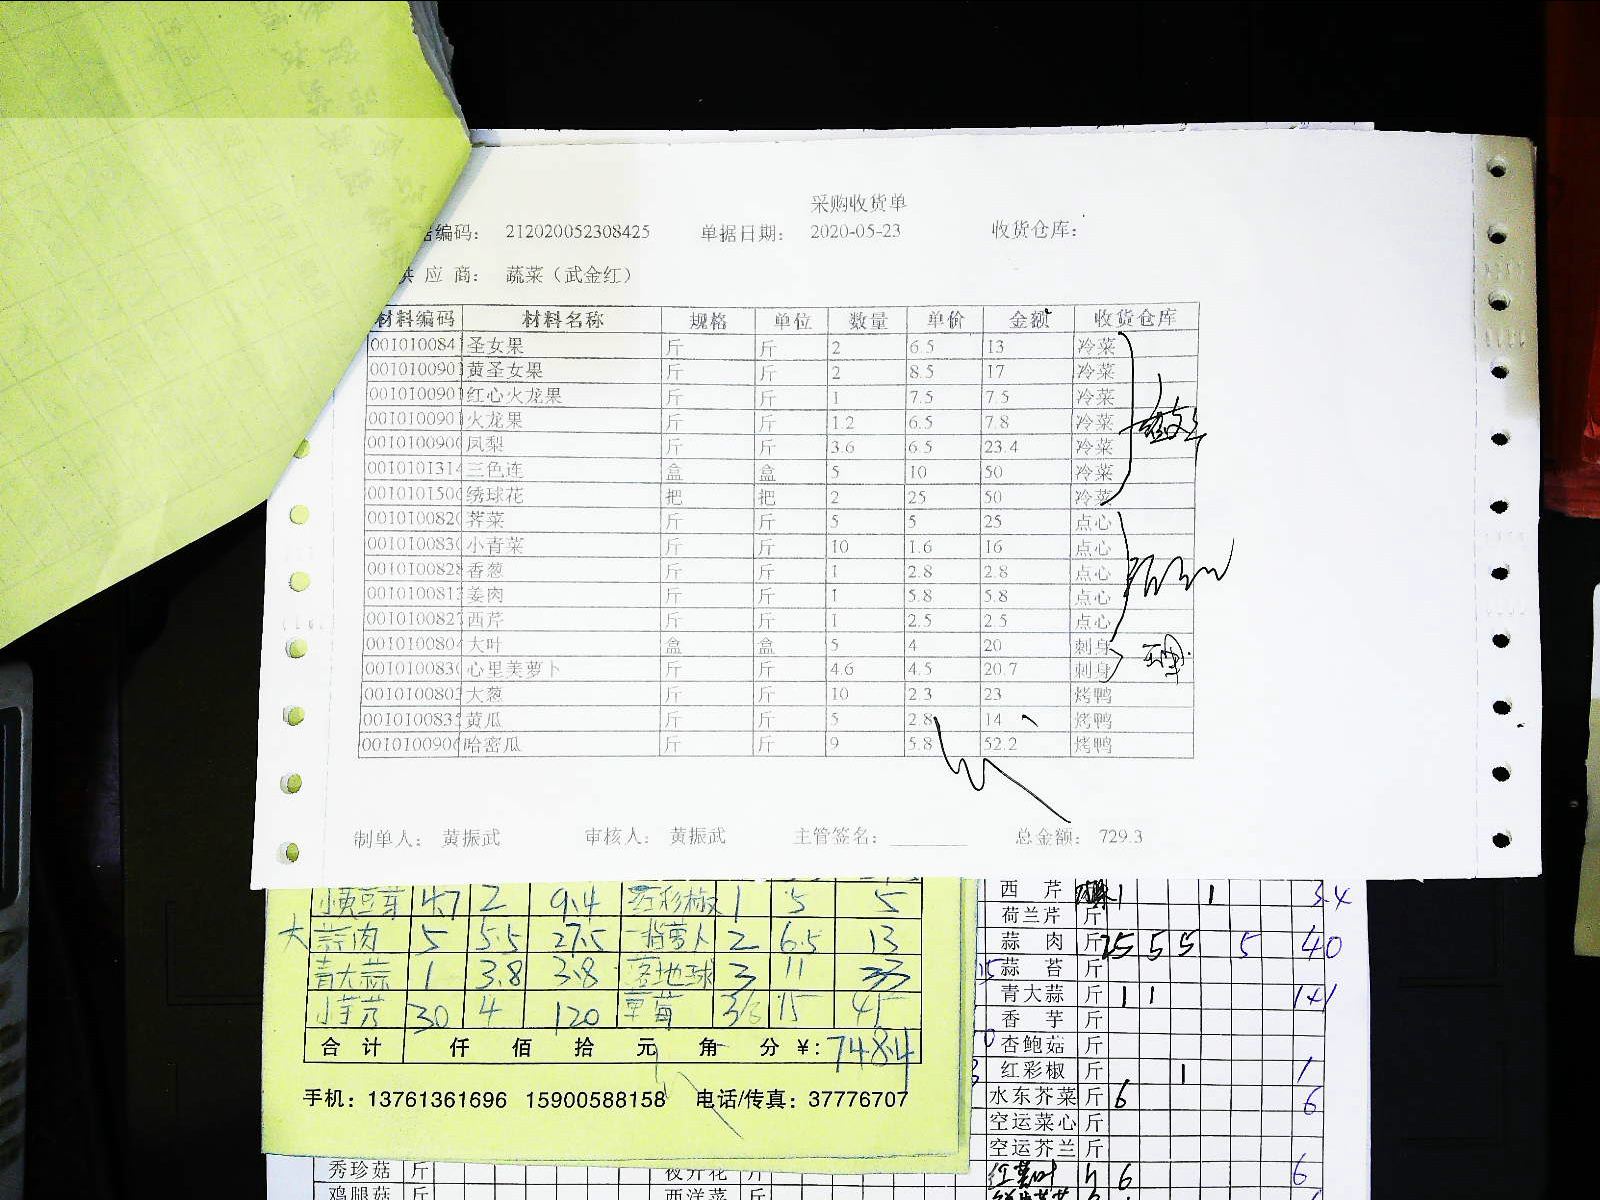 采购收货单
编码: 212020052308425 单据日期: 2020-05-23 收货仓库:
供 应 商: 蔬菜（武金红）
材料编码 材料名称 规格 单位 数量 单价 金额 收货仓库
001010084 圣女果 斤 斤 2 6.5 13 冷菜
001010090 黄圣女果 斤 斤 2 8.5 17 冷菜
001010090 红心火龙果 斤 斤 1 7.5 7.5 冷菜
001010090 火龙果 斤 斤 1.2 6.5 7.8 冷菜
001010090 凤梨 斤 斤 3.6 6.5 23.4 冷菜
001010131 三色连 盒 盒 5 10 50 冷菜
001010150 绣球花 把 把 2 25 50 冷菜
001010082 荠菜 斤 斤 5 5 25 点心
001010083 小青菜 斤 斤 10 1.6 16 点心
001010082 香葱 斤 斤 1 2.8 2.8 点心
001010081 姜肉 斤 斤 1 5.8 5.8 点心
001010082 西芹 斤 斤 1 2.5 2.5 点心
001010080 大叶 盒 盒 5 4 20 刺身
001010083 心里美萝卜 斤 斤 4.6 4.5 20.7 刺身
001010080 大葱 斤 斤 10 2.3 23 烤鸭
001010083 黄瓜 斤 斤 5 2.8 14 烤鸭
001010090 哈密瓜 斤 斤 9 5.8 52.2 烤鸭
制单人: 黄振武 审核人: 黄振武 主管签名: 总金额: 729.3
小黄豆芽 4.7 2 9.4 红彩椒 1 5 5
大蒜肉 5 5.5 27.5 2 6.5 13
青大蒜 1 3.8 3.8 地球 3 11 33
小芋艿 30 4 120 草莓 3 15 45
合 计 仟 佰 拾 元 角 分 ¥: 748.4
手机: 13761361696 15900588158 电话/传真: 37776707
西 芹 1 1 3.4
荷兰芹 斤
蒜 肉 斤 25 5 5 5 40
蒜 苔 斤
青大蒜 斤 1 1 1+1
香 芋 斤
杏鲍菇 斤
红彩椒 斤 1 1
水东芥菜 斤 6 6
空运菜心 斤
空运芥兰 斤
6 6
秀珍菇 斤 夜开花 斤
鸡腿菇 斤 西洋菜 斤